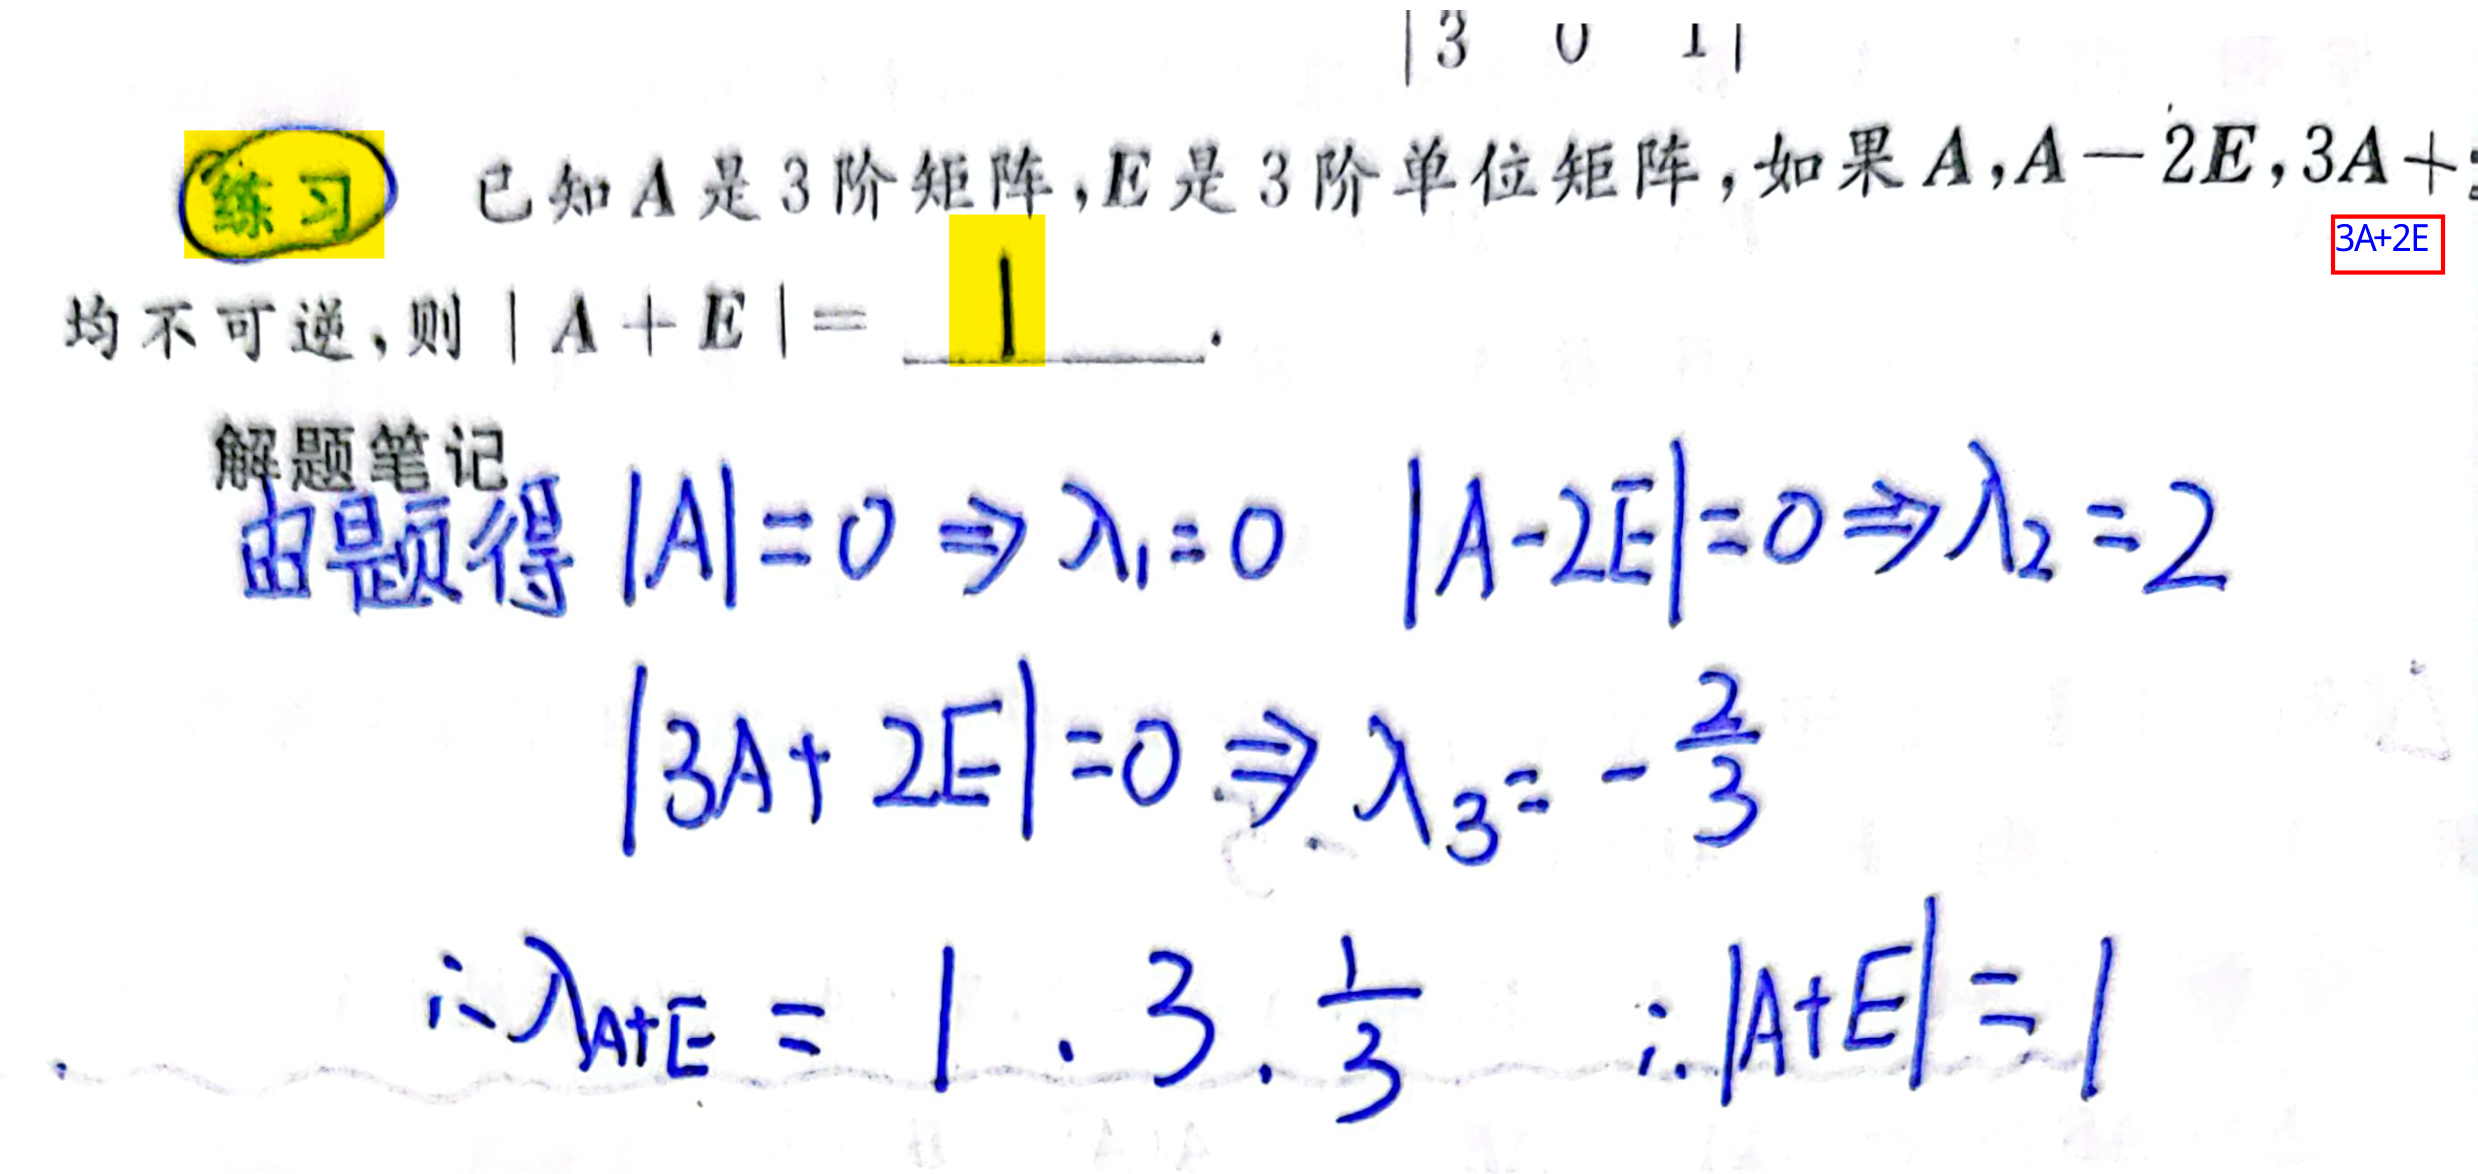 |3 0 1|
练习 已知 A 是 3 阶矩阵,E 是 3 阶单位矩阵,如果 A,A－2E,3A＋
3A+2E
均不可逆,则 | A＋E |＝ 1 .
解题笔记
由题得 |A|=0 ⇒ λ₁=0 |A-2E|=0 ⇒ λ₂=2
|3A+2E|=0 ⇒ λ₃=-2/3
∴ λA+E = 1 . 3 . 1/3 ∴ |A+E|=1